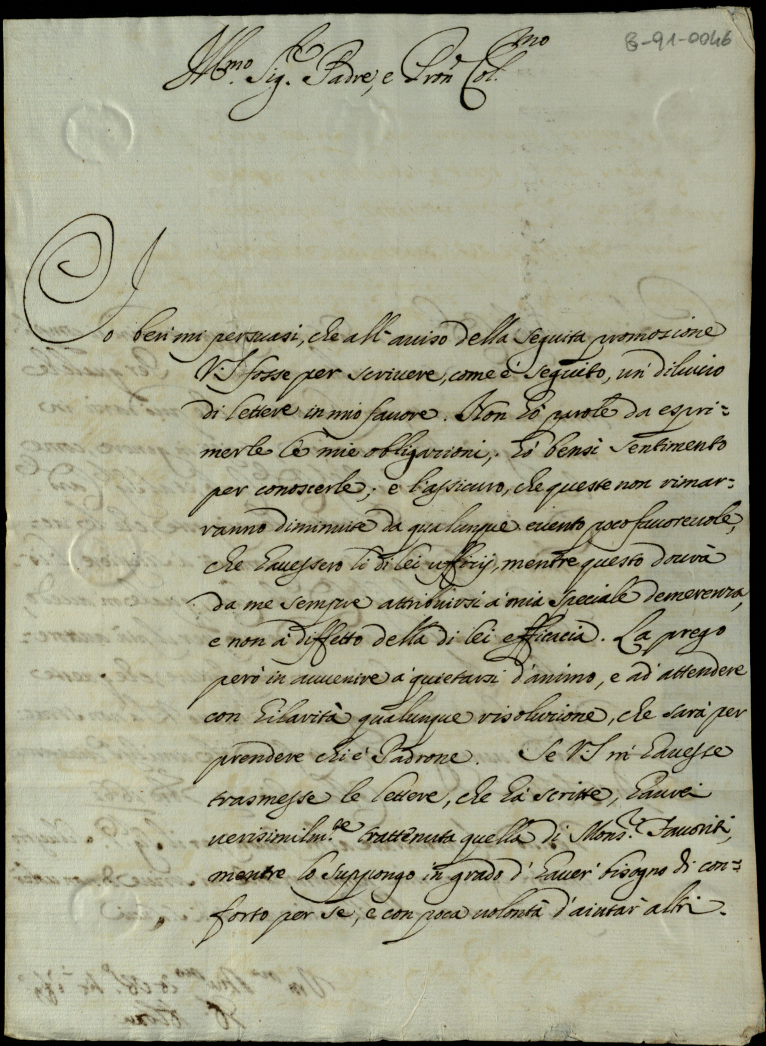 B-91-0046
Ill.mo Sig.re Padre, e Pron Col.mo
Io ben mi persuasi, che all'auuiso della seguita promozione
V.S. fosse per scriuere, come è seguito, un diluuio
di lettere in mio fauore. Non hò parole da espri-
merle le mie obligazioni; hò bensì sentimento
per conoscerle; e l'assicuro, che queste non rimar-
ranno diminuite da qualunque euento poco fauoreuole,
che hauessero li di lei uffizij, mentre questo dourà
da me sempre attribuirsi à mia speciale demerenza,
e non à diffetto della di lei efficacia. La prego
però in auuenire à quietarsi d'animo, e ad' attendere
con hilarità qualunque risoluzione, che sarà per
prendere chi è Padrone. Se V.S. m'hauesse
trasmesse le lettere, che hà scritte, haurei
uerisimilm.te trattenuta quella di Mons.r Fauoriti,
mentre lo suppongo in grado d'hauer' bisogno di con-
forto per se, e con poca uolontà d'aiutar altri.